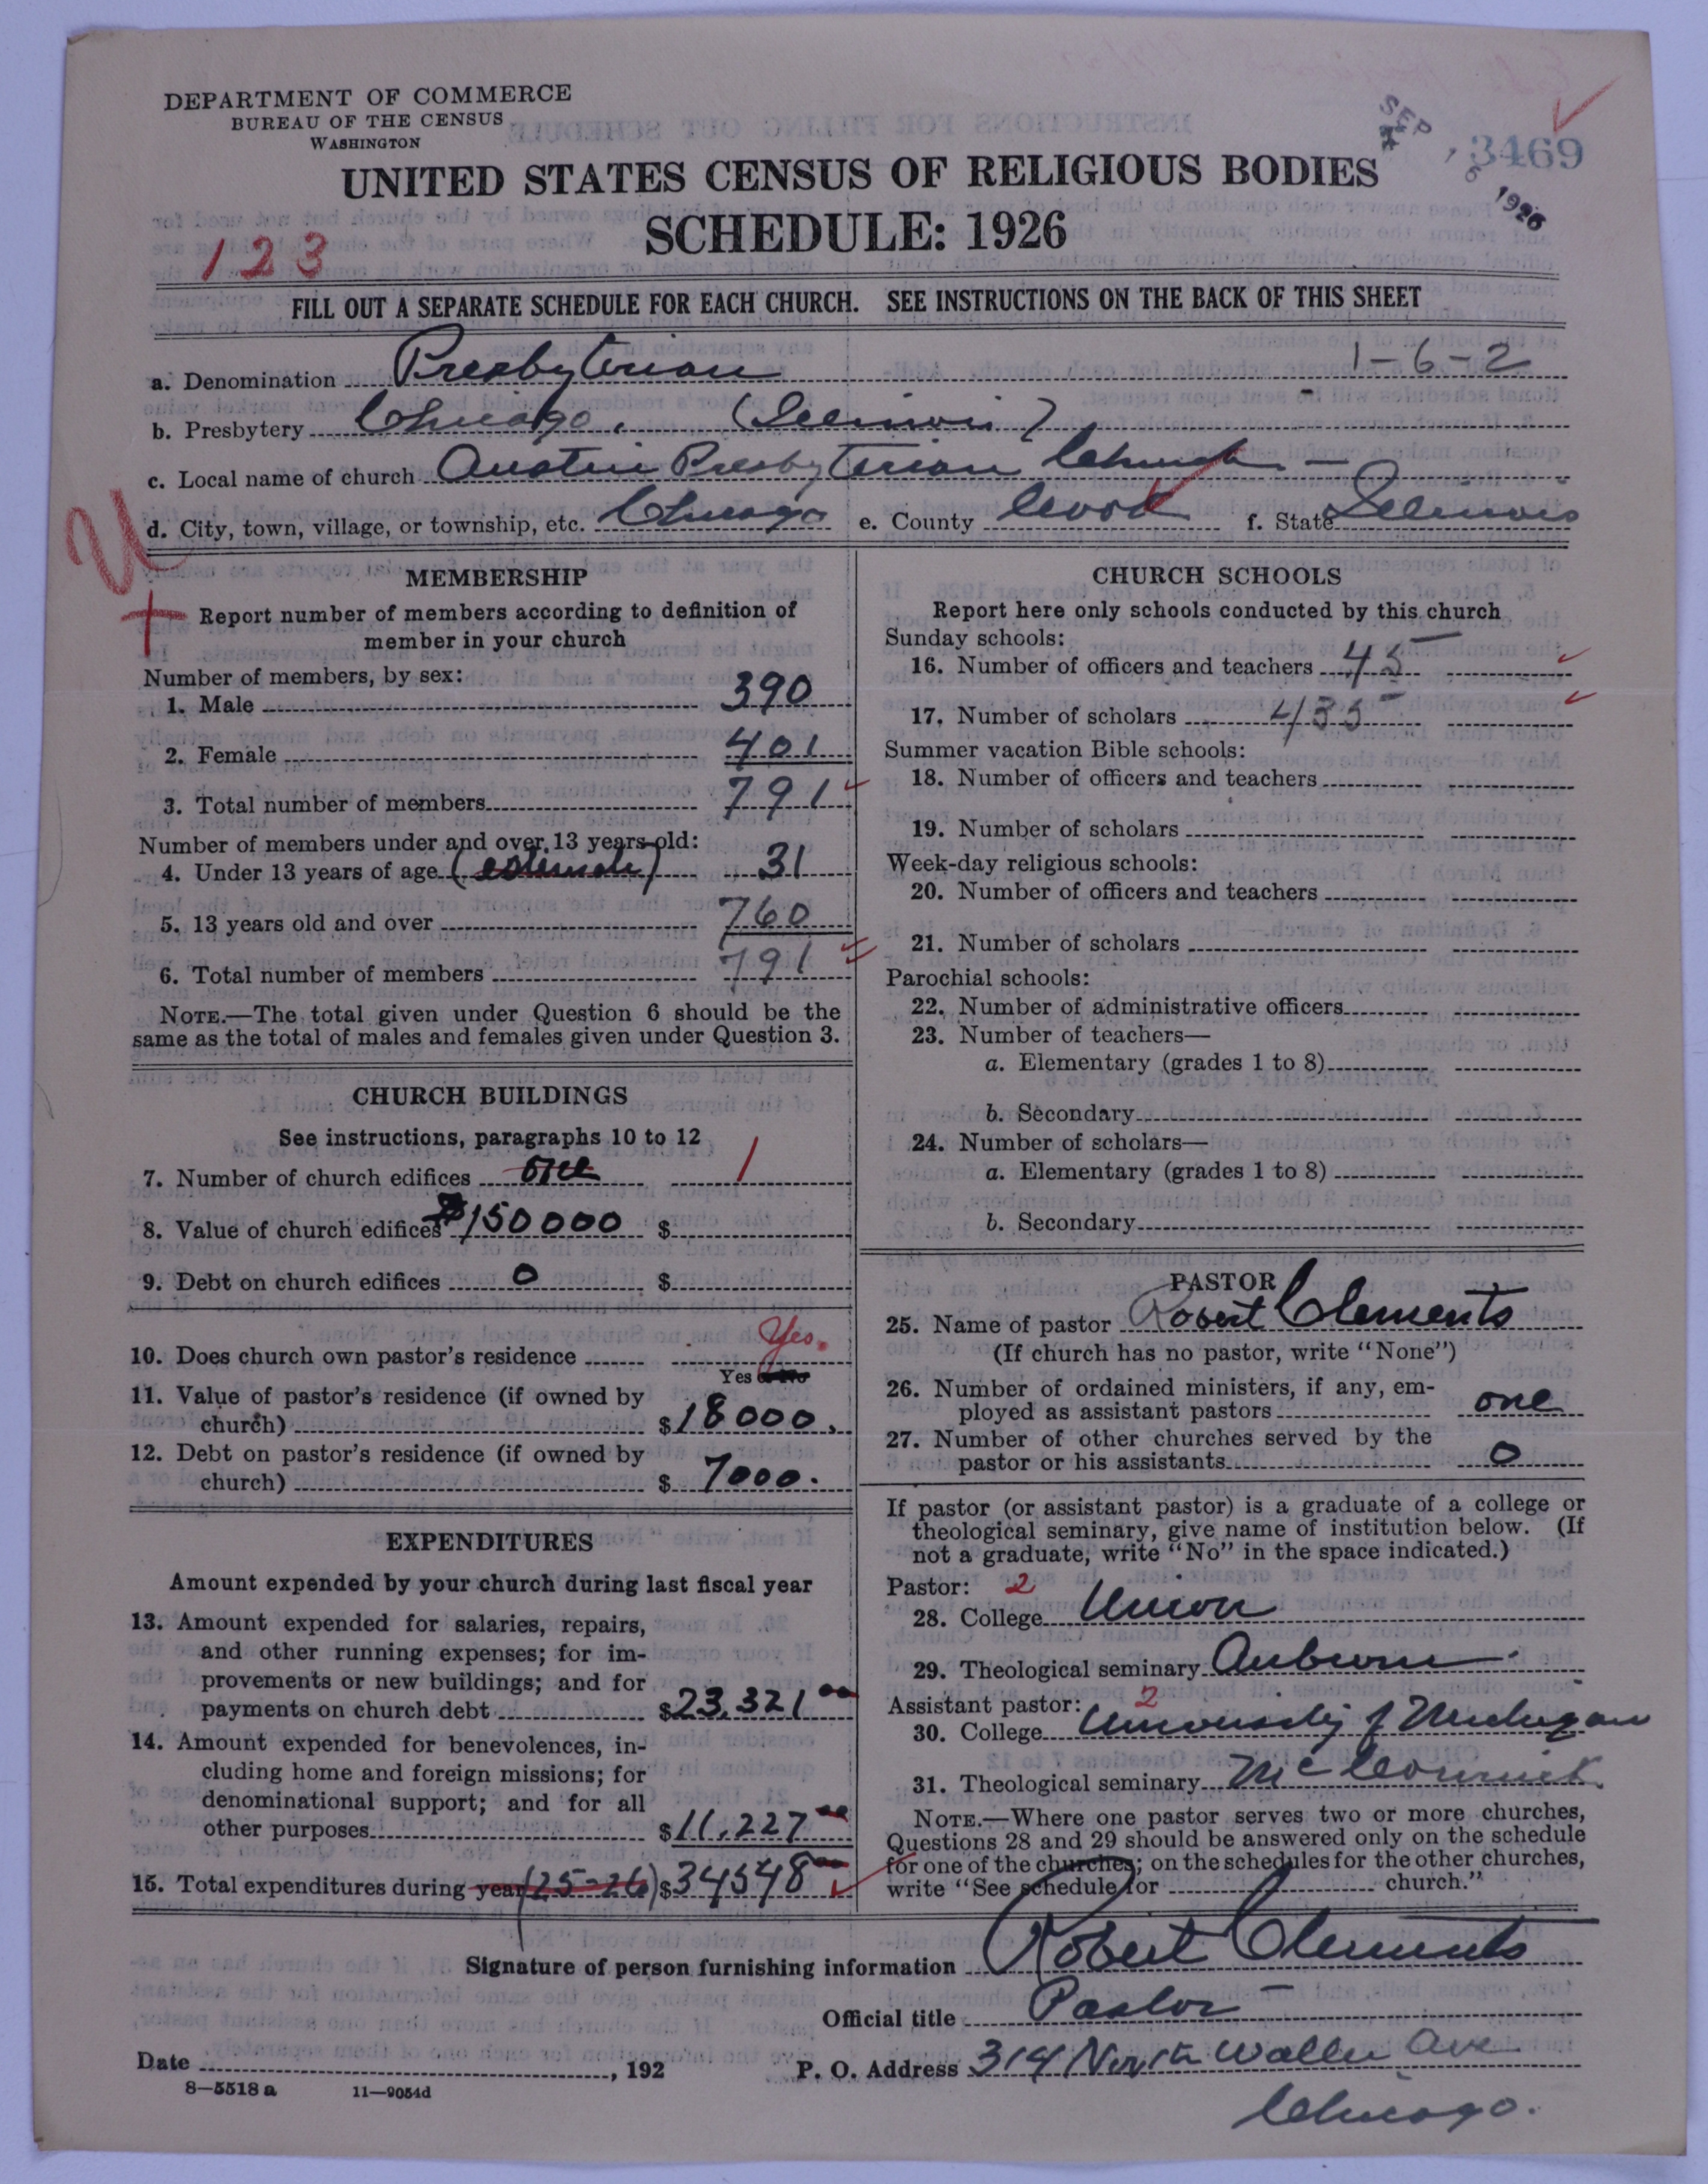 DEPARTMENT OF COMMERCE
BUREAU OF THE CENSUS
WASHINGTON
SEP 6 1926
3469
UNITED STATES CENSUS OF RELIGIOUS BODIES
SCHEDULE: 1926
123
FILL OUT A SEPARATE SCHEDULE FOR EACH CHURCH. SEE INSTRUCTIONS ON THE BACK OF THIS SHEET
1-6-2
a. Denomination Presbyterian
b. Presbytery Chicago, (Illinois)
c. Local name of church Austin Presbyterian Church
d. City, town, village, or township, etc. Chicago e. County Cook f. State Illinois
U
MEMBERSHIP
Report number of members according to definition of
member in your church
Number of members, by sex:
1. Male 390
2. Female 401
3. Total number of members 791
Number of members under and over 13 years old:
4. Under 13 years of age (estimate) 31
5. 13 years old and over 760
6. Total number of members 791
NOTE.—The total given under Question 6 should be the
same as the total of males and females given under Question 3.
CHURCH BUILDINGS
See instructions, paragraphs 10 to 12
7. Number of church edifices one 1
8. Value of church edifices $150000 $
9. Debt on church edifices 0 $
10. Does church own pastor's residence Yes.
Yes or No
11. Value of pastor's residence (if owned by
church) $18000.
12. Debt on pastor's residence (if owned by
church) $7000.
EXPENDITURES
Amount expended by your church during last fiscal year
13. Amount expended for salaries, repairs,
and other running expenses; for im-
provements or new buildings; and for
payments on church debt $23,321 00
14. Amount expended for benevolences, in-
cluding home and foreign missions; for
denominational support; and for all
other purposes $11,227 00
15. Total expenditures during year (25-26) $34548 00
CHURCH SCHOOLS
Report here only schools conducted by this church
Sunday schools:
16. Number of officers and teachers 45
17. Number of scholars 435
Summer vacation Bible schools:
18. Number of officers and teachers
19. Number of scholars
Week-day religious schools:
20. Number of officers and teachers
21. Number of scholars
Parochial schools:
22. Number of administrative officers
23. Number of teachers—
a. Elementary (grades 1 to 8)
b. Secondary
24. Number of scholars—
a. Elementary (grades 1 to 8)
b. Secondary
PASTOR
25. Name of pastor Robert Clements
(If church has no pastor, write "None")
26. Number of ordained ministers, if any, em-
ployed as assistant pastors one
27. Number of other churches served by the
pastor or his assistants 0
If pastor (or assistant pastor) is a graduate of a college or
theological seminary, give name of institution below. (If
not a graduate, write "No" in the space indicated.)
Pastor: 2
28. College Union
29. Theological seminary Auburn
Assistant pastor: 2
30. College University of Michigan
31. Theological seminary McCormick
NOTE.—Where one pastor serves two or more churches,
Questions 28 and 29 should be answered only on the schedule
for one of the churches; on the schedules for the other churches,
write "See schedule for church."
Signature of person furnishing information Robert Clements
Official title Pastor
Date , 192 P. O. Address 314 North Waller Ave
Chicago.
8—5518a 11—9054d